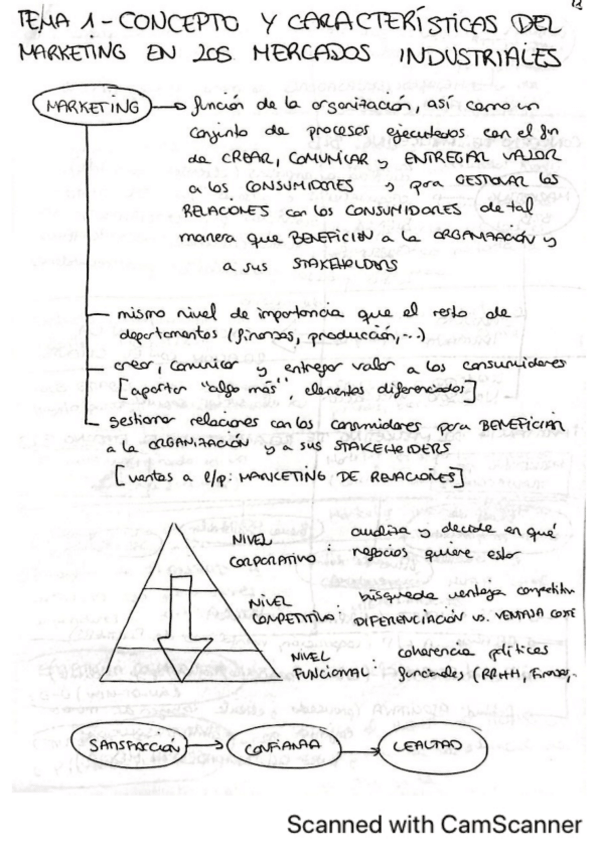 TEMA 1 - CONCEPTO Y CARACTERÍSTICAS DEL
MARKETING EN LOS MERCADOS INDUSTRIALES
MARKETING → función de la organización, así como un
conjunto de procesos ejecutados con el fin
de CREAR, COMUNICAR y ENTREGAR VALOR
a los CONSUMIDORES y para GESTIONAR las
RELACIONES con los CONSUMIDORES de tal
manera que BENEFICIEN a la ORGANIZACIÓN y
a sus STAKEHOLDERS
mismo nivel de importancia que el resto de
departamentos (finanzas, producción,...)
crear, comunicar y entregar valor a los consumidores
[aportar "algo más", elementos diferenciados]
gestionar relaciones con los consumidores para BENEFICIAR
a la ORGANIZACIÓN y a sus STAKEHOLDERS
[ventas a l/p: MARKETING DE RELACIONES]
NIVEL CORPORATIVO: analiza y decide en qué
negocios quiere estar
NIVEL COMPETITIVO: búsqueda ventaja competitiva
DIFERENCIACIÓN vs. VENTAJA COSTE
NIVEL FUNCIONAL: coherencia políticas
funcionales (RRHH, Finanzas,..
SATISFACCIÓN → CONFIANZA → LEALTAD
Scanned with CamScanner